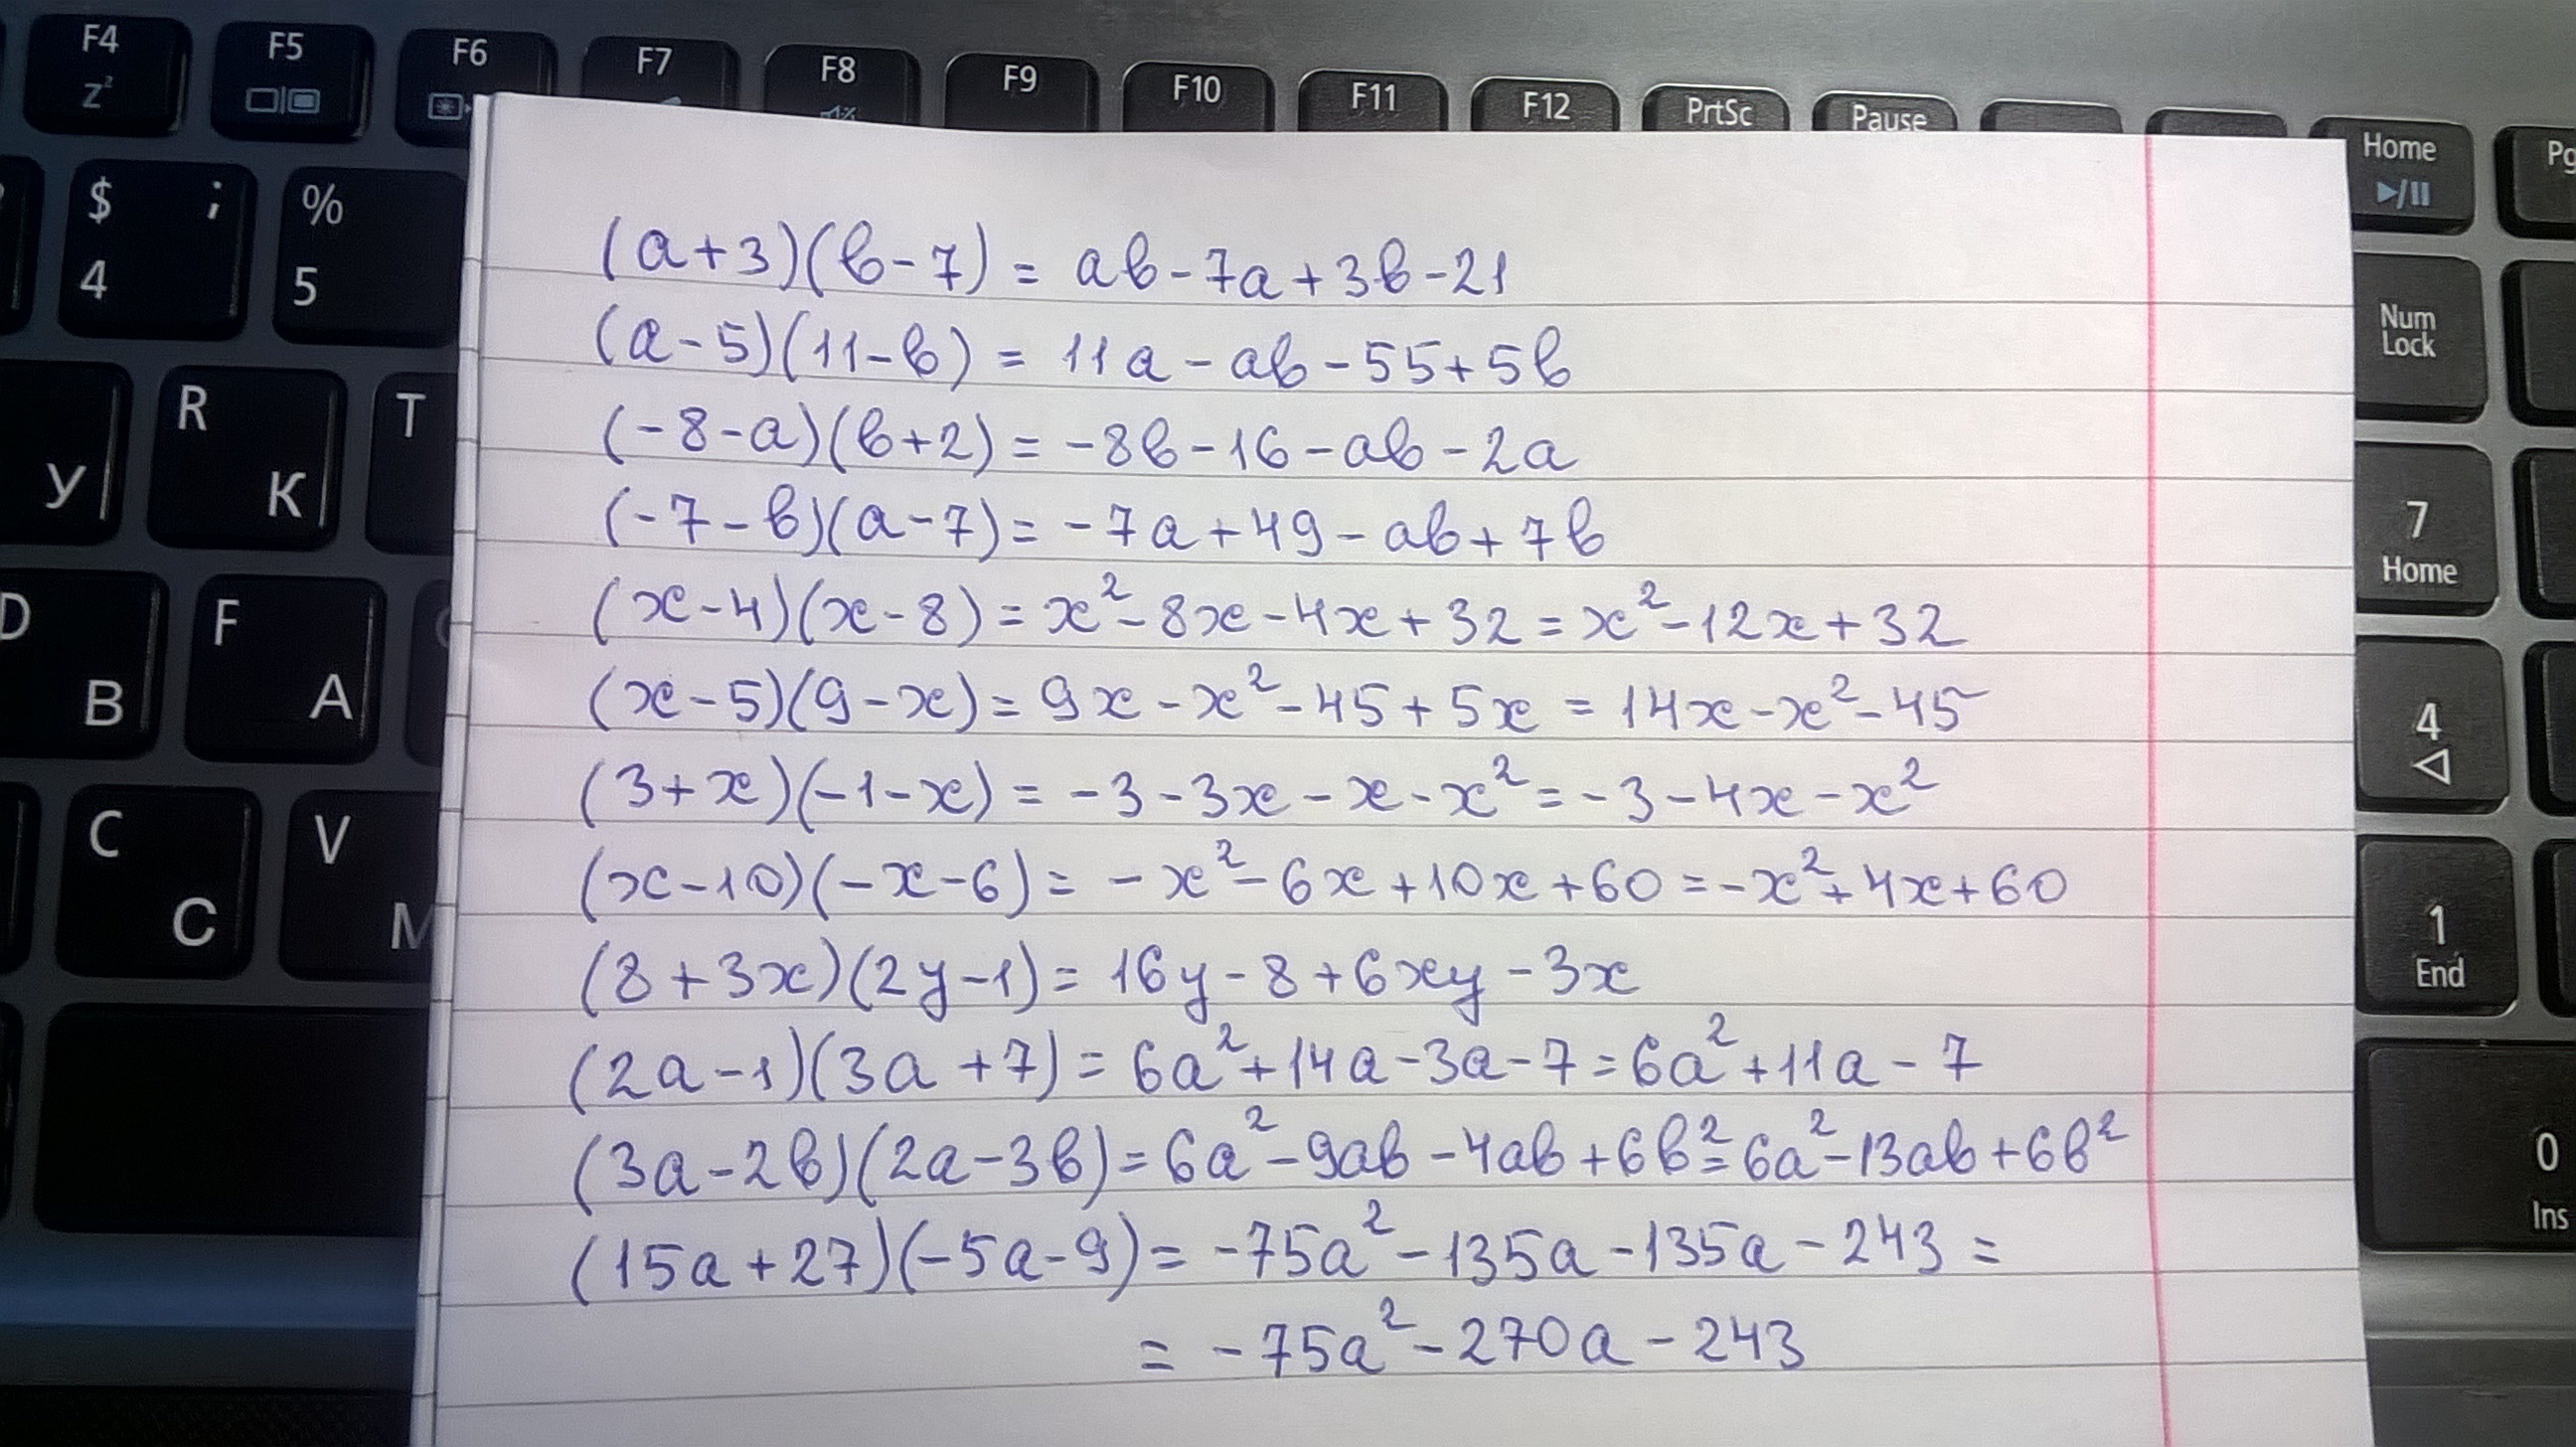 F4 F5 F6 F7 F8 F9 F10 F11 F12 PrtSc Pause Home Pg
Z
$ ; %
4 5
Num Lock
R T
У К
7
Home
D F
В А
4
C V
С М
1
End
0
Ins
(a+3)(b-7) = ab-7a+3b-21
(a-5)(11-b) = 11a-ab-55+5b
(-8-a)(b+2) = -8b-16-ab-2a
(-7-b)(a-7) = -7a+49-ab+7b
(x-4)(x-8) = x²-8x-4x+32 = x²-12x+32
(x-5)(9-x) = 9x-x²-45+5x = 14x-x²-45
(3+x)(-1-x) = -3-3x-x-x² = -3-4x-x²
(x-10)(-x-6) = -x²-6x+10x+60 = -x²+4x+60
(8+3x)(2y-1) = 16y-8+6xy-3x
(2a-1)(3a+7) = 6a²+14a-3a-7 = 6a²+11a-7
(3a-2b)(2a-3b) = 6a²-9ab-4ab+6b² = 6a²-13ab+6b²
(15a+27)(-5a-9) = -75a²-135a-135a-243 =
= -75a²-270a-243